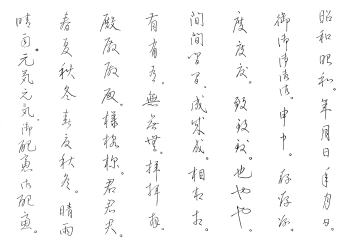 昭和昭和。年月日年月日。
御御御御御。申申。存存存。
度度度。致致致。也也也。
間間間間、成成成。相相相。
有有有、無無無。拝拝拝。
殿殿殿殿。様様様。君君君。
春夏秋冬春夏秋冬。晴雨
晴雨。元気元気。御配慮御配慮。